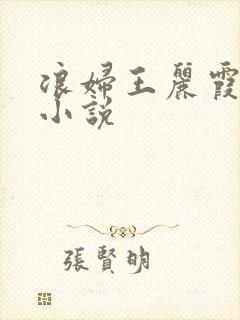 浪婦王麗霞
小說
張賢明